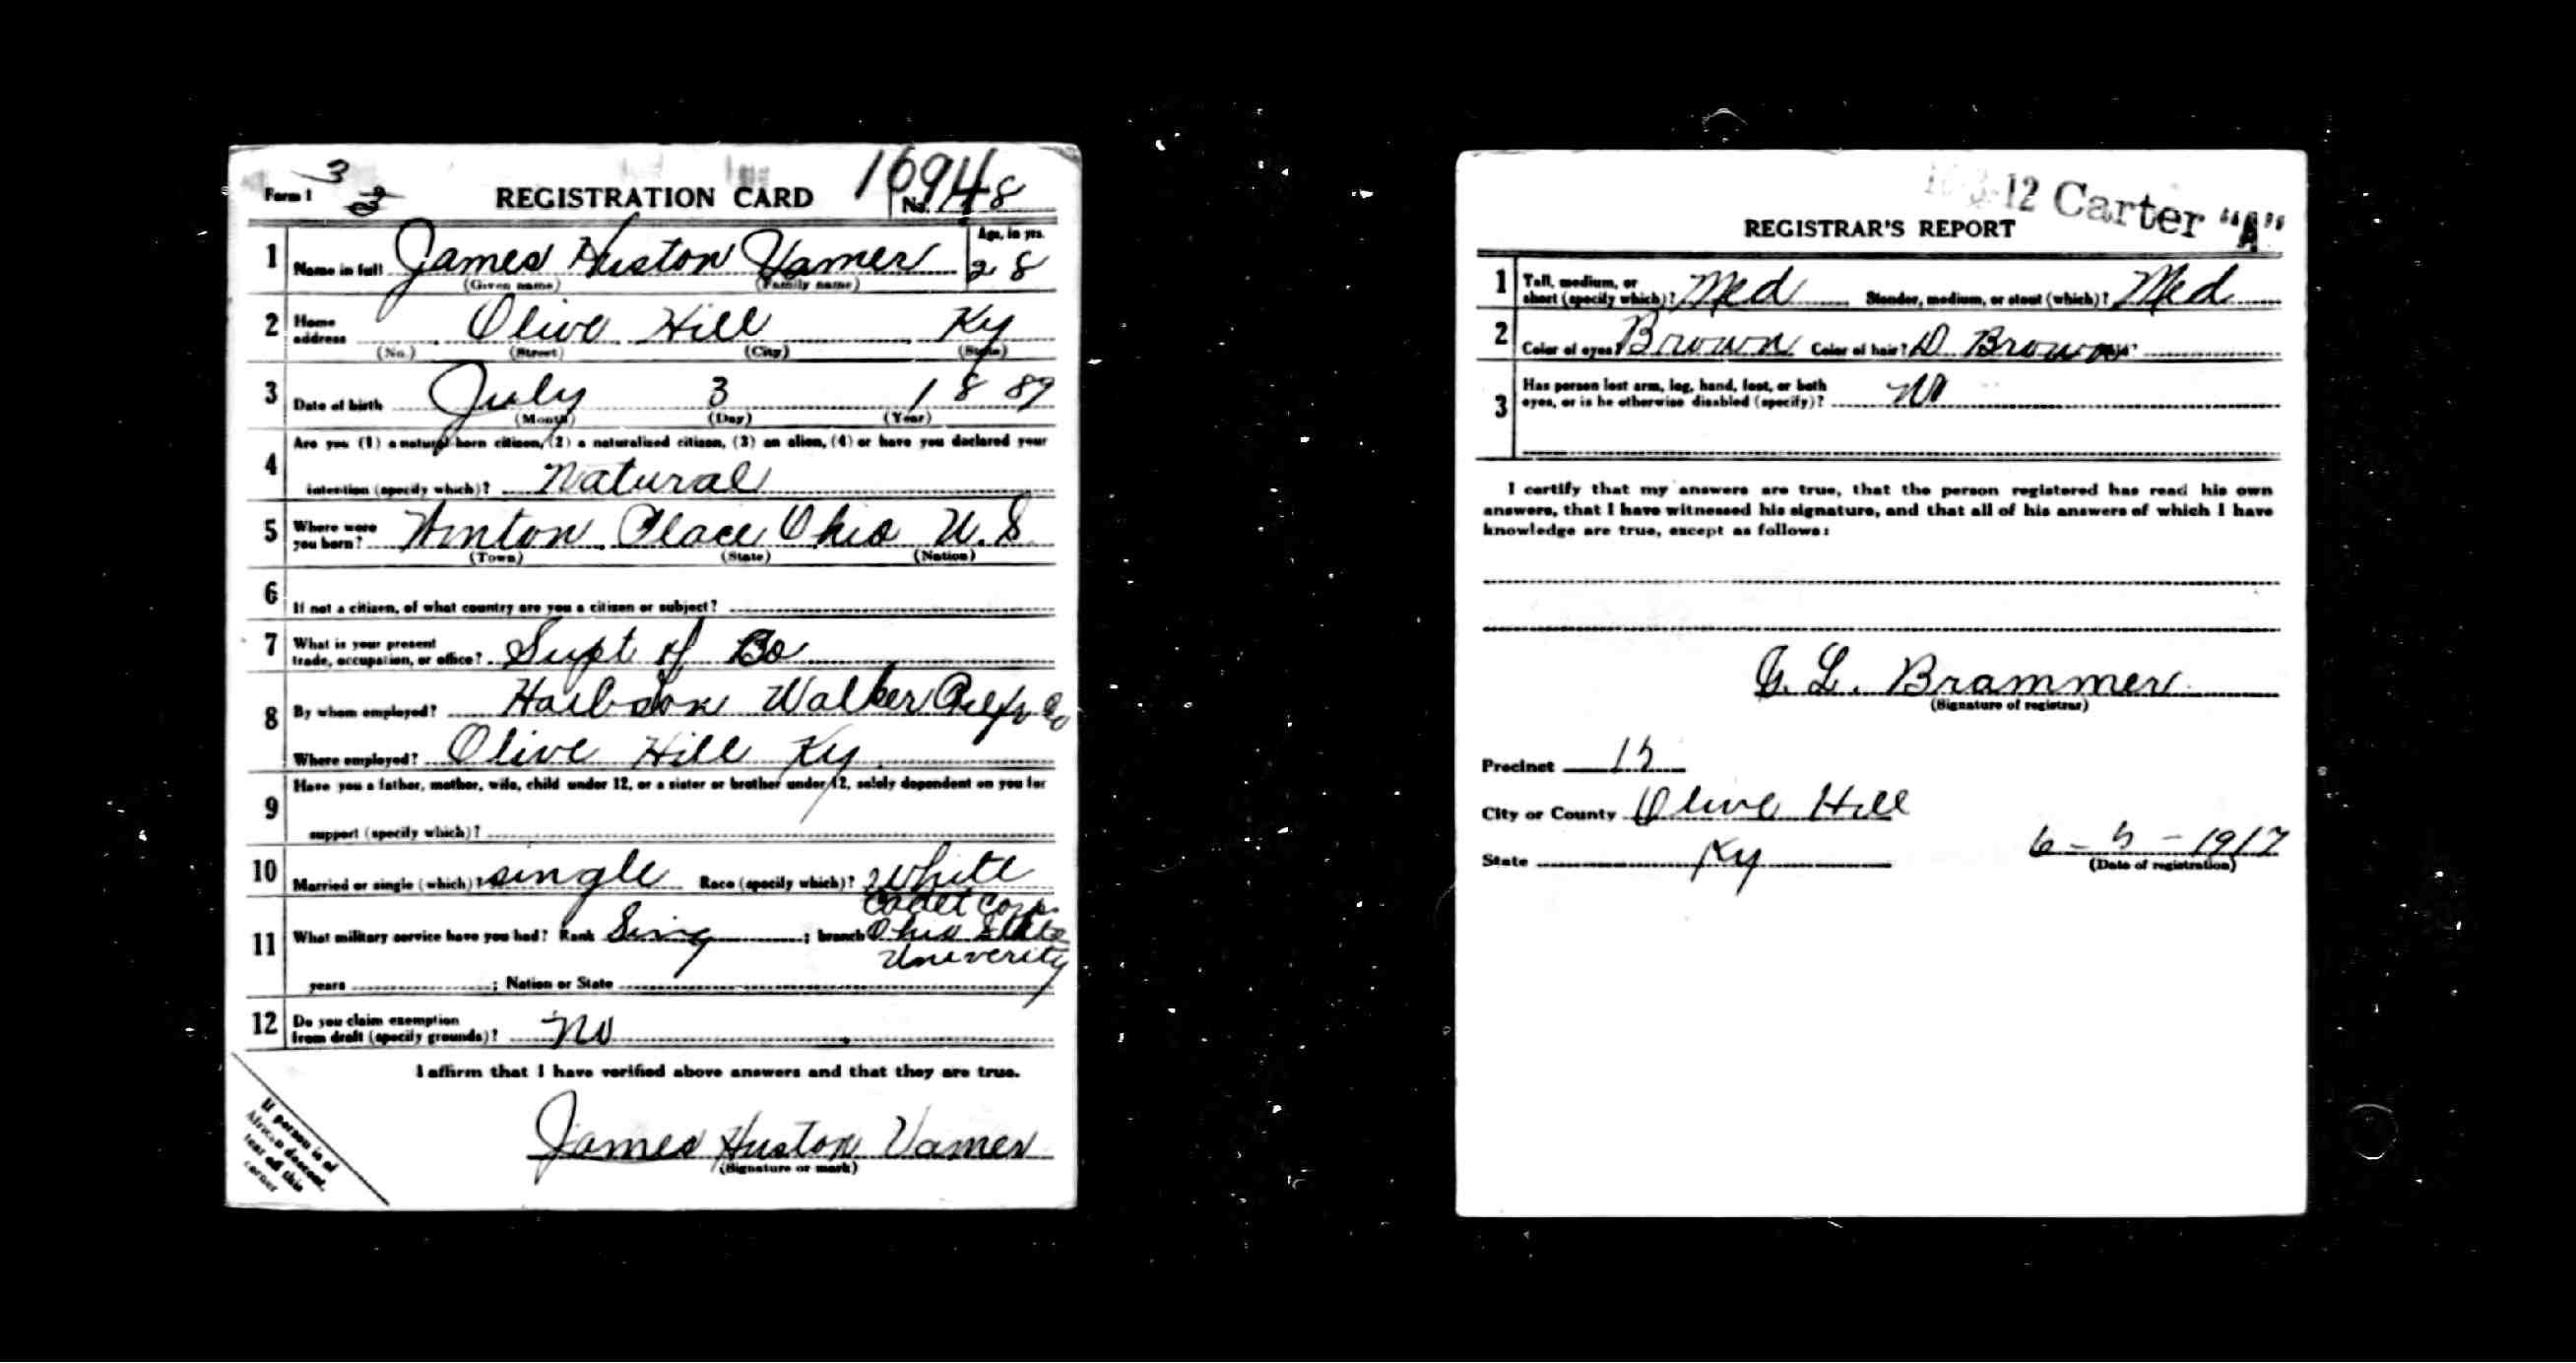 Form 1 3 3 REGISTRATION CARD No. 48
1 Name in full James Huston Vamer Age, in yrs. 28
(Given name) (Family name)
2 Home address Olive Hill Ky
(No.) (Street) (City) (State)
3 Date of birth July 3 1889
(Month) (Day) (Year)
4 Are you (1) a natural-born citizen, (2) a naturalized citizen, (3) an alien, (4) or have you declared your
intention (specify which)? Natural
5 Where were you born? Winton Place Ohio U.S
(Town) (State) (Nation)
6 If not a citizen, of what country are you a citizen or subject?
7 What is your present trade, occupation, or office? Supt of Co
8 By whom employed? Walker Co
Where employed? Olive Hill Ky
9 Have you a father, mother, wife, child under 12, or a sister or brother under 12, solely dependent on you for
support (specify which)?
10 Married or single (which)? single Race (specify which)? White
11 What military service have you had? Rank ; branch Cadet Corp. Ohio State Univerity
years ; Nation or State
12 Do you claim exemption from draft (specify grounds)? No
I affirm that I have verified above answers and that they are true.
James Huston Vamer
(Signature or mark)
If person is of
African descent,
tear off this
corner
12 Carter "A"
REGISTRAR'S REPORT
1 Tall, medium, or short (specify which)? Med Slender, medium, or stout (which)? Med
2 Color of eyes? Brown Color of hair? D Brown
3 Has person lost arm, leg, hand, foot, or both
eyes, or is he otherwise disabled (specify)? No
I certify that my answers are true, that the person registered has read his own
answers, that I have witnessed his signature, and that all of his answers of which I have
knowledge are true, except as follows:
G. L. Brammer
(Signature of registrar)
Precinct 15
City or County Olive Hill
State Ky 6-5-1917
(Date of registration)